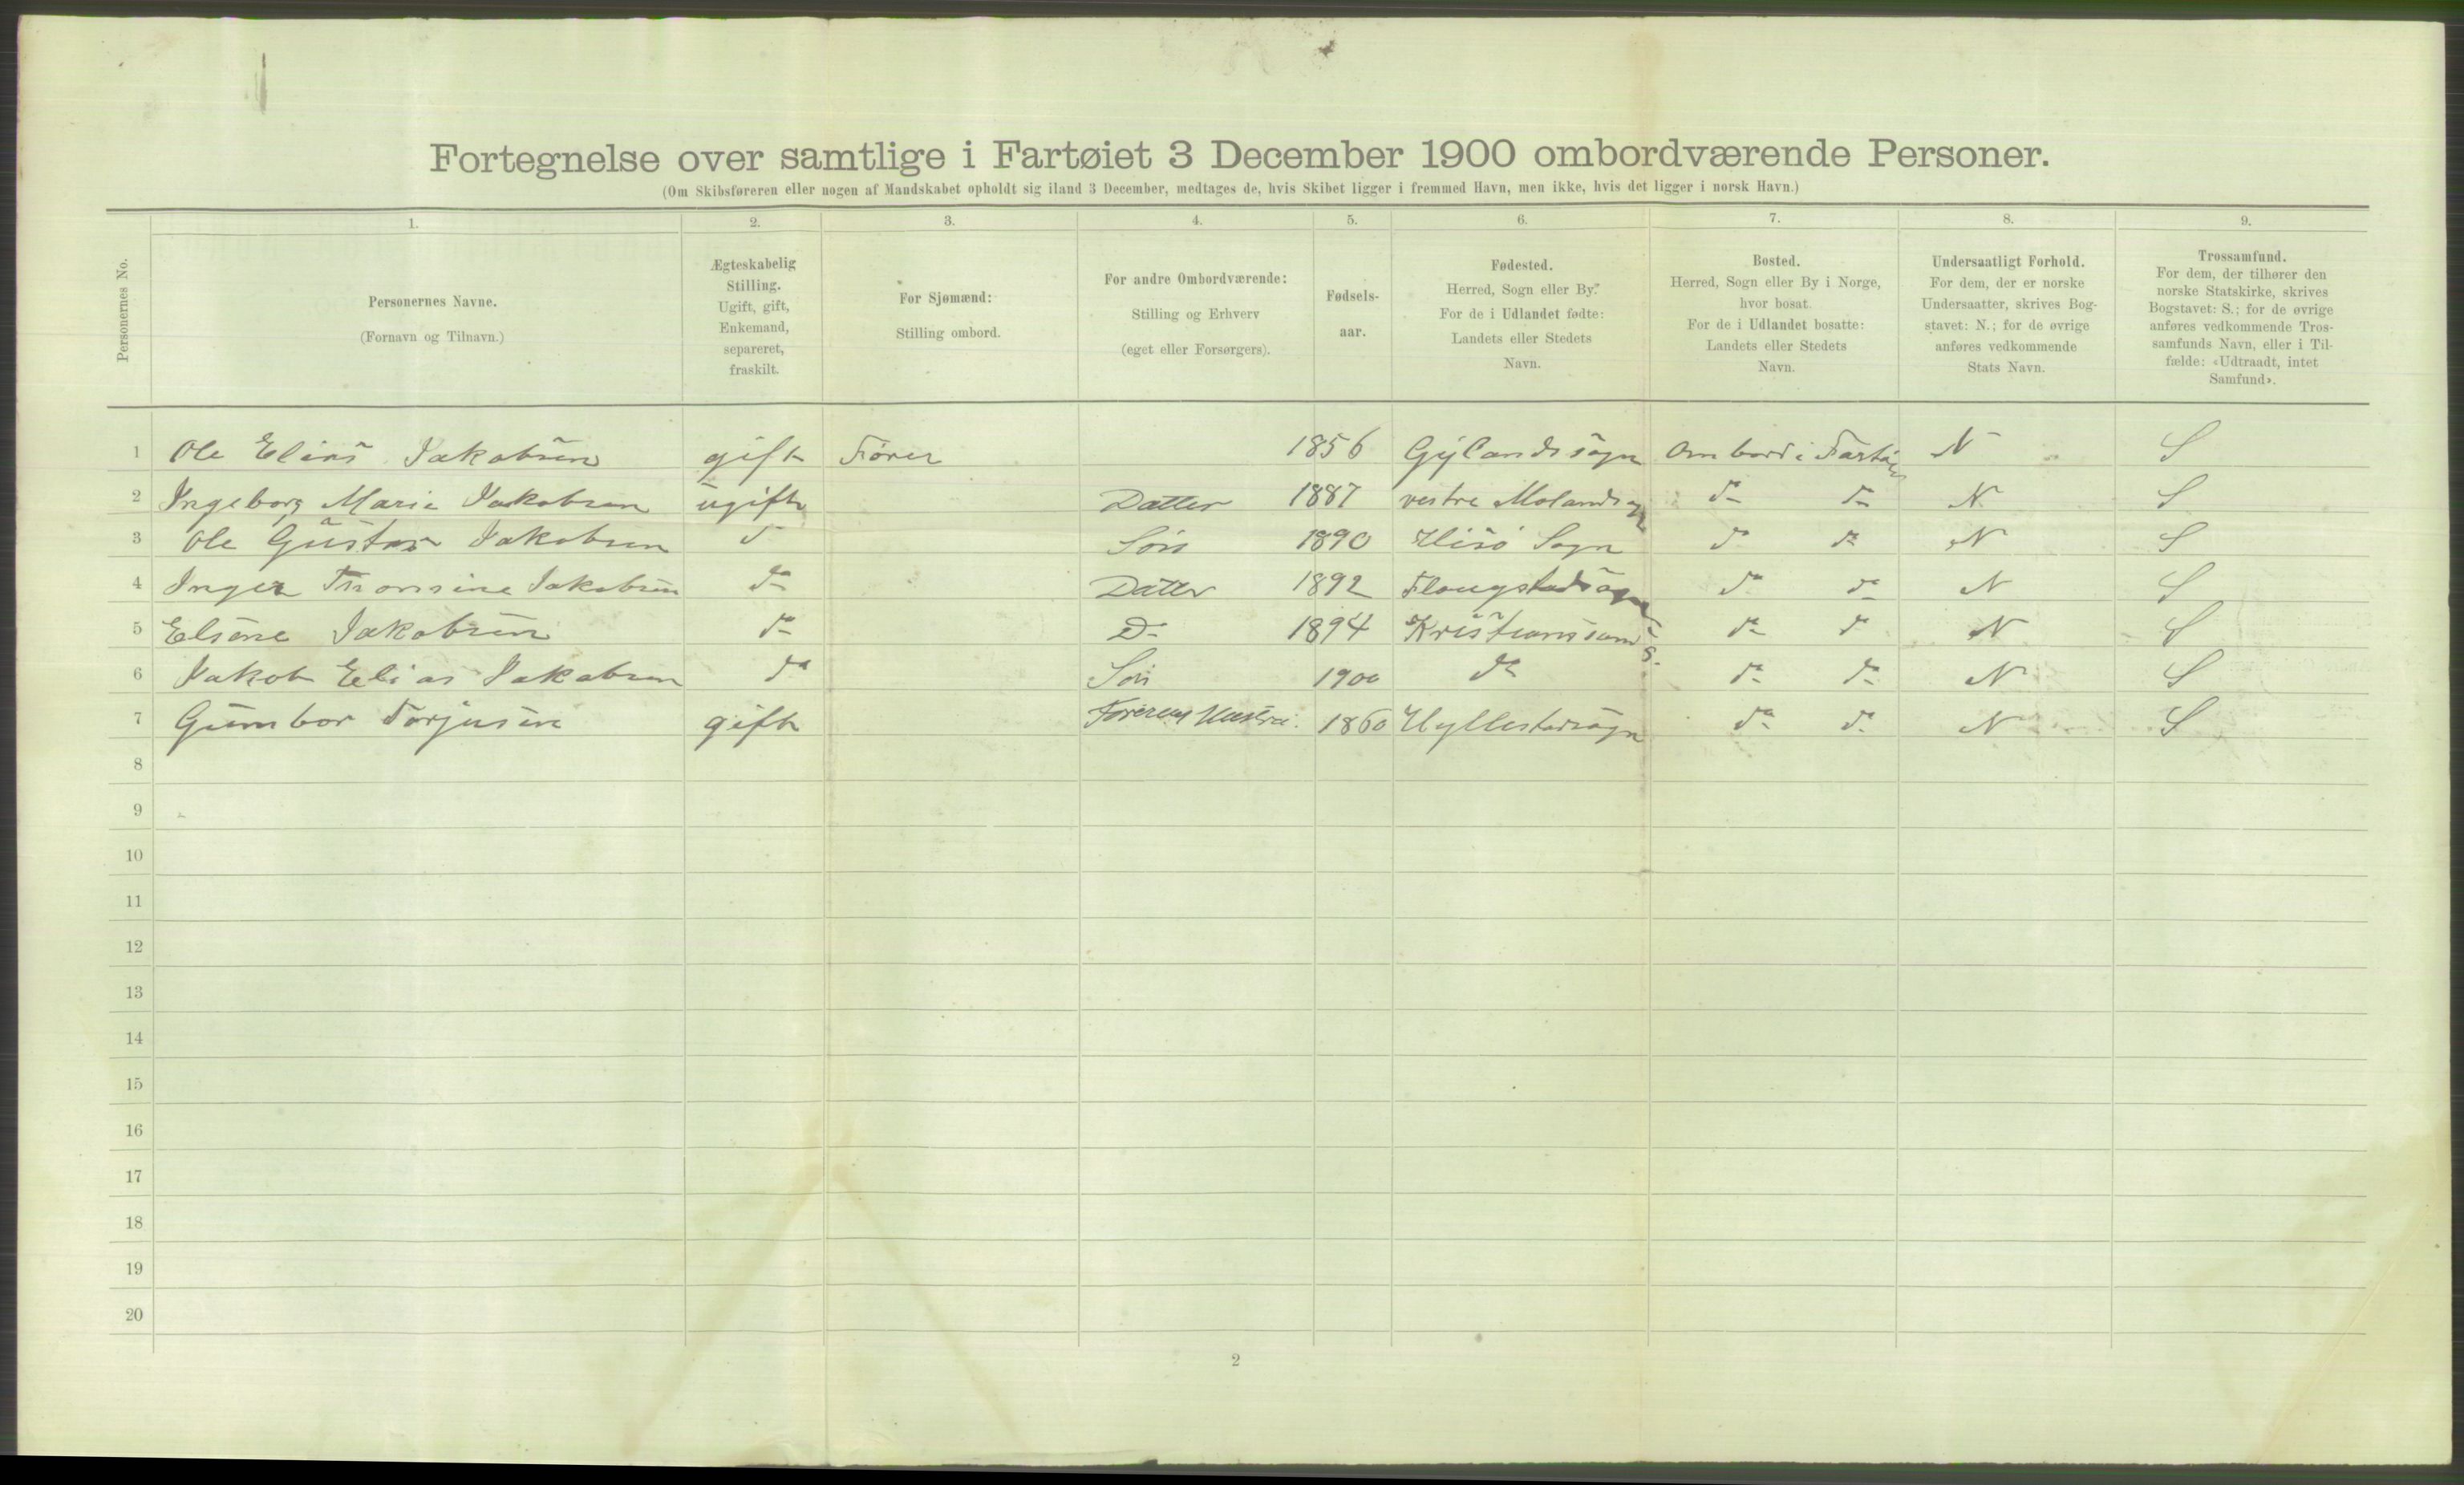 Fortegnelse over samtlige i Fartøiet 3 December 1900 ombordværende Personer.
(Om Skibsføreren eller nogen af Mandskabet opholdt sig iland 3 December, medtages de, hvis Skibet ligger i fremmed Havn, men ikke, hvis det ligger i norsk Havn.)
Personernes No.
1. Personernes Navne. (Fornavn og Tilnavn.)
2. Ægteskabelig Stilling. Ugift, gift, Enkemand, separeret, fraskilt.
3. For Sjømænd: Stilling ombord.
4. For andre Ombordværende: Stilling og Erhverv (eget eller Forsørgers).
5. Fødsels-aar.
6. Fødested. Herred, Sogn eller By. For de i Udlandet fødte: Landets eller Stedets Navn.
7. Bosted. Herred, Sogn eller By i Norge, hvor bosat. For de i Udlandet bosatte: Landets eller Stedets Navn.
8. Undersaatligt Forhold. For dem, der er norske Undersaatter, skrives Bogstavet: N.; for de øvrige anføres vedkommende Stats Navn.
9. Trossamfund. For dem, der tilhører den norske Statskirke, skrives Bogstavet: S.; for de øvrige anføres vedkommende Trossamfunds Navn, eller i Tilfælde: «Udtraadt, intet Samfund».
1 Ole Elias Jakobsen gift Fører 1856 Gylandssogn Ombord i Fartøiet N S
2 Ingeborg Marie Jakobsen ugift Datter 1887 vestre Molandsogn do do N S
3 Ole Gustav Jakobsen do Søn 1890 Hisö Sogn do do N S
4 Inger Thomine Jakobsen do Datter 1892 do do N S
5 Elsine Jakobsen do Do 1894 Kristianssand S. do do N S
6 Jakob Elias Jakobsen do Søn 1900 do do do N S
7 Gunbor Torjusen gift Førerens Hustru. 1860 Hyllestadsogn do do N S
8
9
10
11
12
13
14
15
16
17
18
19
20
2